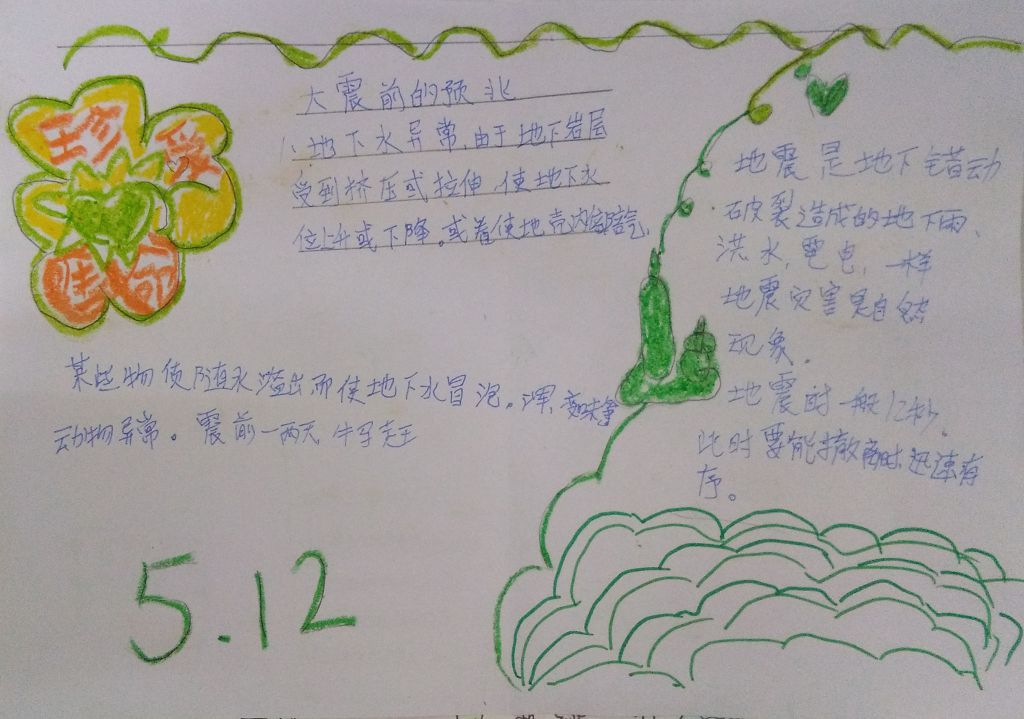 珍爱
生命
大震前的预兆
1、地下水异常,由于地下岩层
受到挤压或拉伸,使地下水
位上升或下降。或者使地壳内部气
某些物质随水溢出而使地下水冒泡。浑、变味等
动物异常。震前一两天 牛马
5.12
地震是地下错动
破裂造成的地下雨、
洪水,雷电,一样
地震灾害是自然
现象。
地震时一般12秒。
此时要能撤离时迅速有
序。